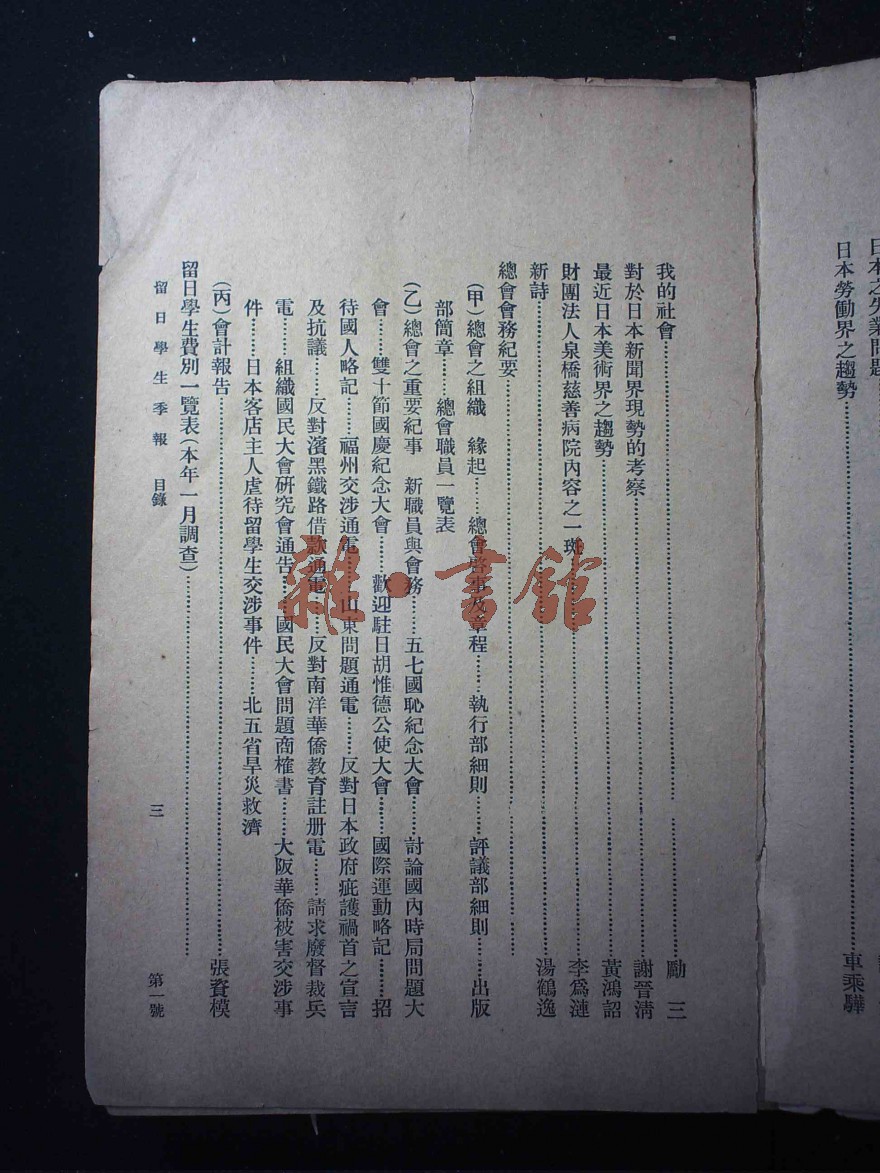 日本勞働界之趨勢……車乘驊
我的社會……勵　三
對於日本新聞界現勢的考察……謝晉淸
最近日本美術界之趨勢……黃鴻詔
財團法人泉橋慈善病院內容之一斑……李爲漣
新詩……湯鶴逸
總會會務紀要……
(甲)總會之組織　緣起……總會啓事及章程……執行部細則……評議部細則……出版
部簡章……總會職員一覽表
(乙)總會之重要紀事　新職員與會務……五七國恥紀念大會……討論國內時局問題大
會……雙十節國慶紀念大會……歡迎駐日胡惟德公使大會……國際運動略記……招
待國人略記……福州交涉通電……山東問題通電……反對日本政府疵護禍首之宣言
及抗議……反對濱黑鐵路借款通電……反對南洋華僑教育註册電……請求廢督裁兵
電……組織國民大會研究會通告……國民大會問題商榷書……大阪華僑被害交涉事
件……日本客店主人虐待留學生交涉事件……北五省旱災救濟
(丙)會計報告……張資模
留日學生費別一覽表(本年一月調查)……
留日學生季報　目錄　三　第一號
雜·書館